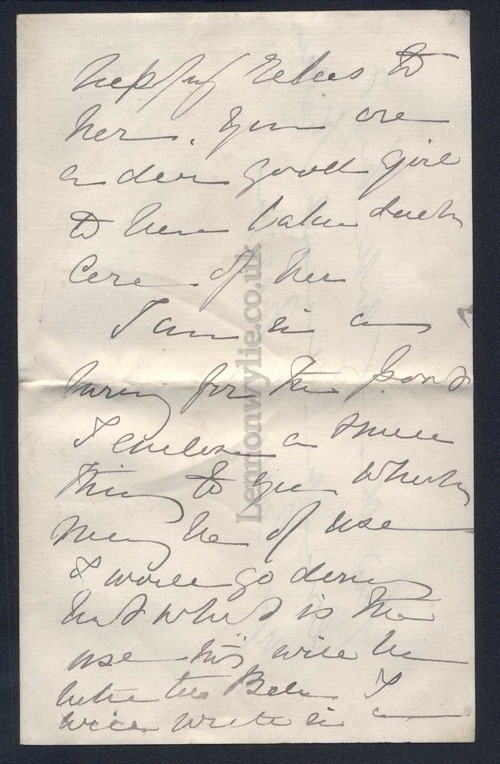 to
her. You are
a dear good girl
to have taken such
care of her
I am in a
hurry for the post
I enclose a small
thing to you which
may be of use
I would go down
but what is the
use this will be
better
will write in a
Lennonwylie.co.uk